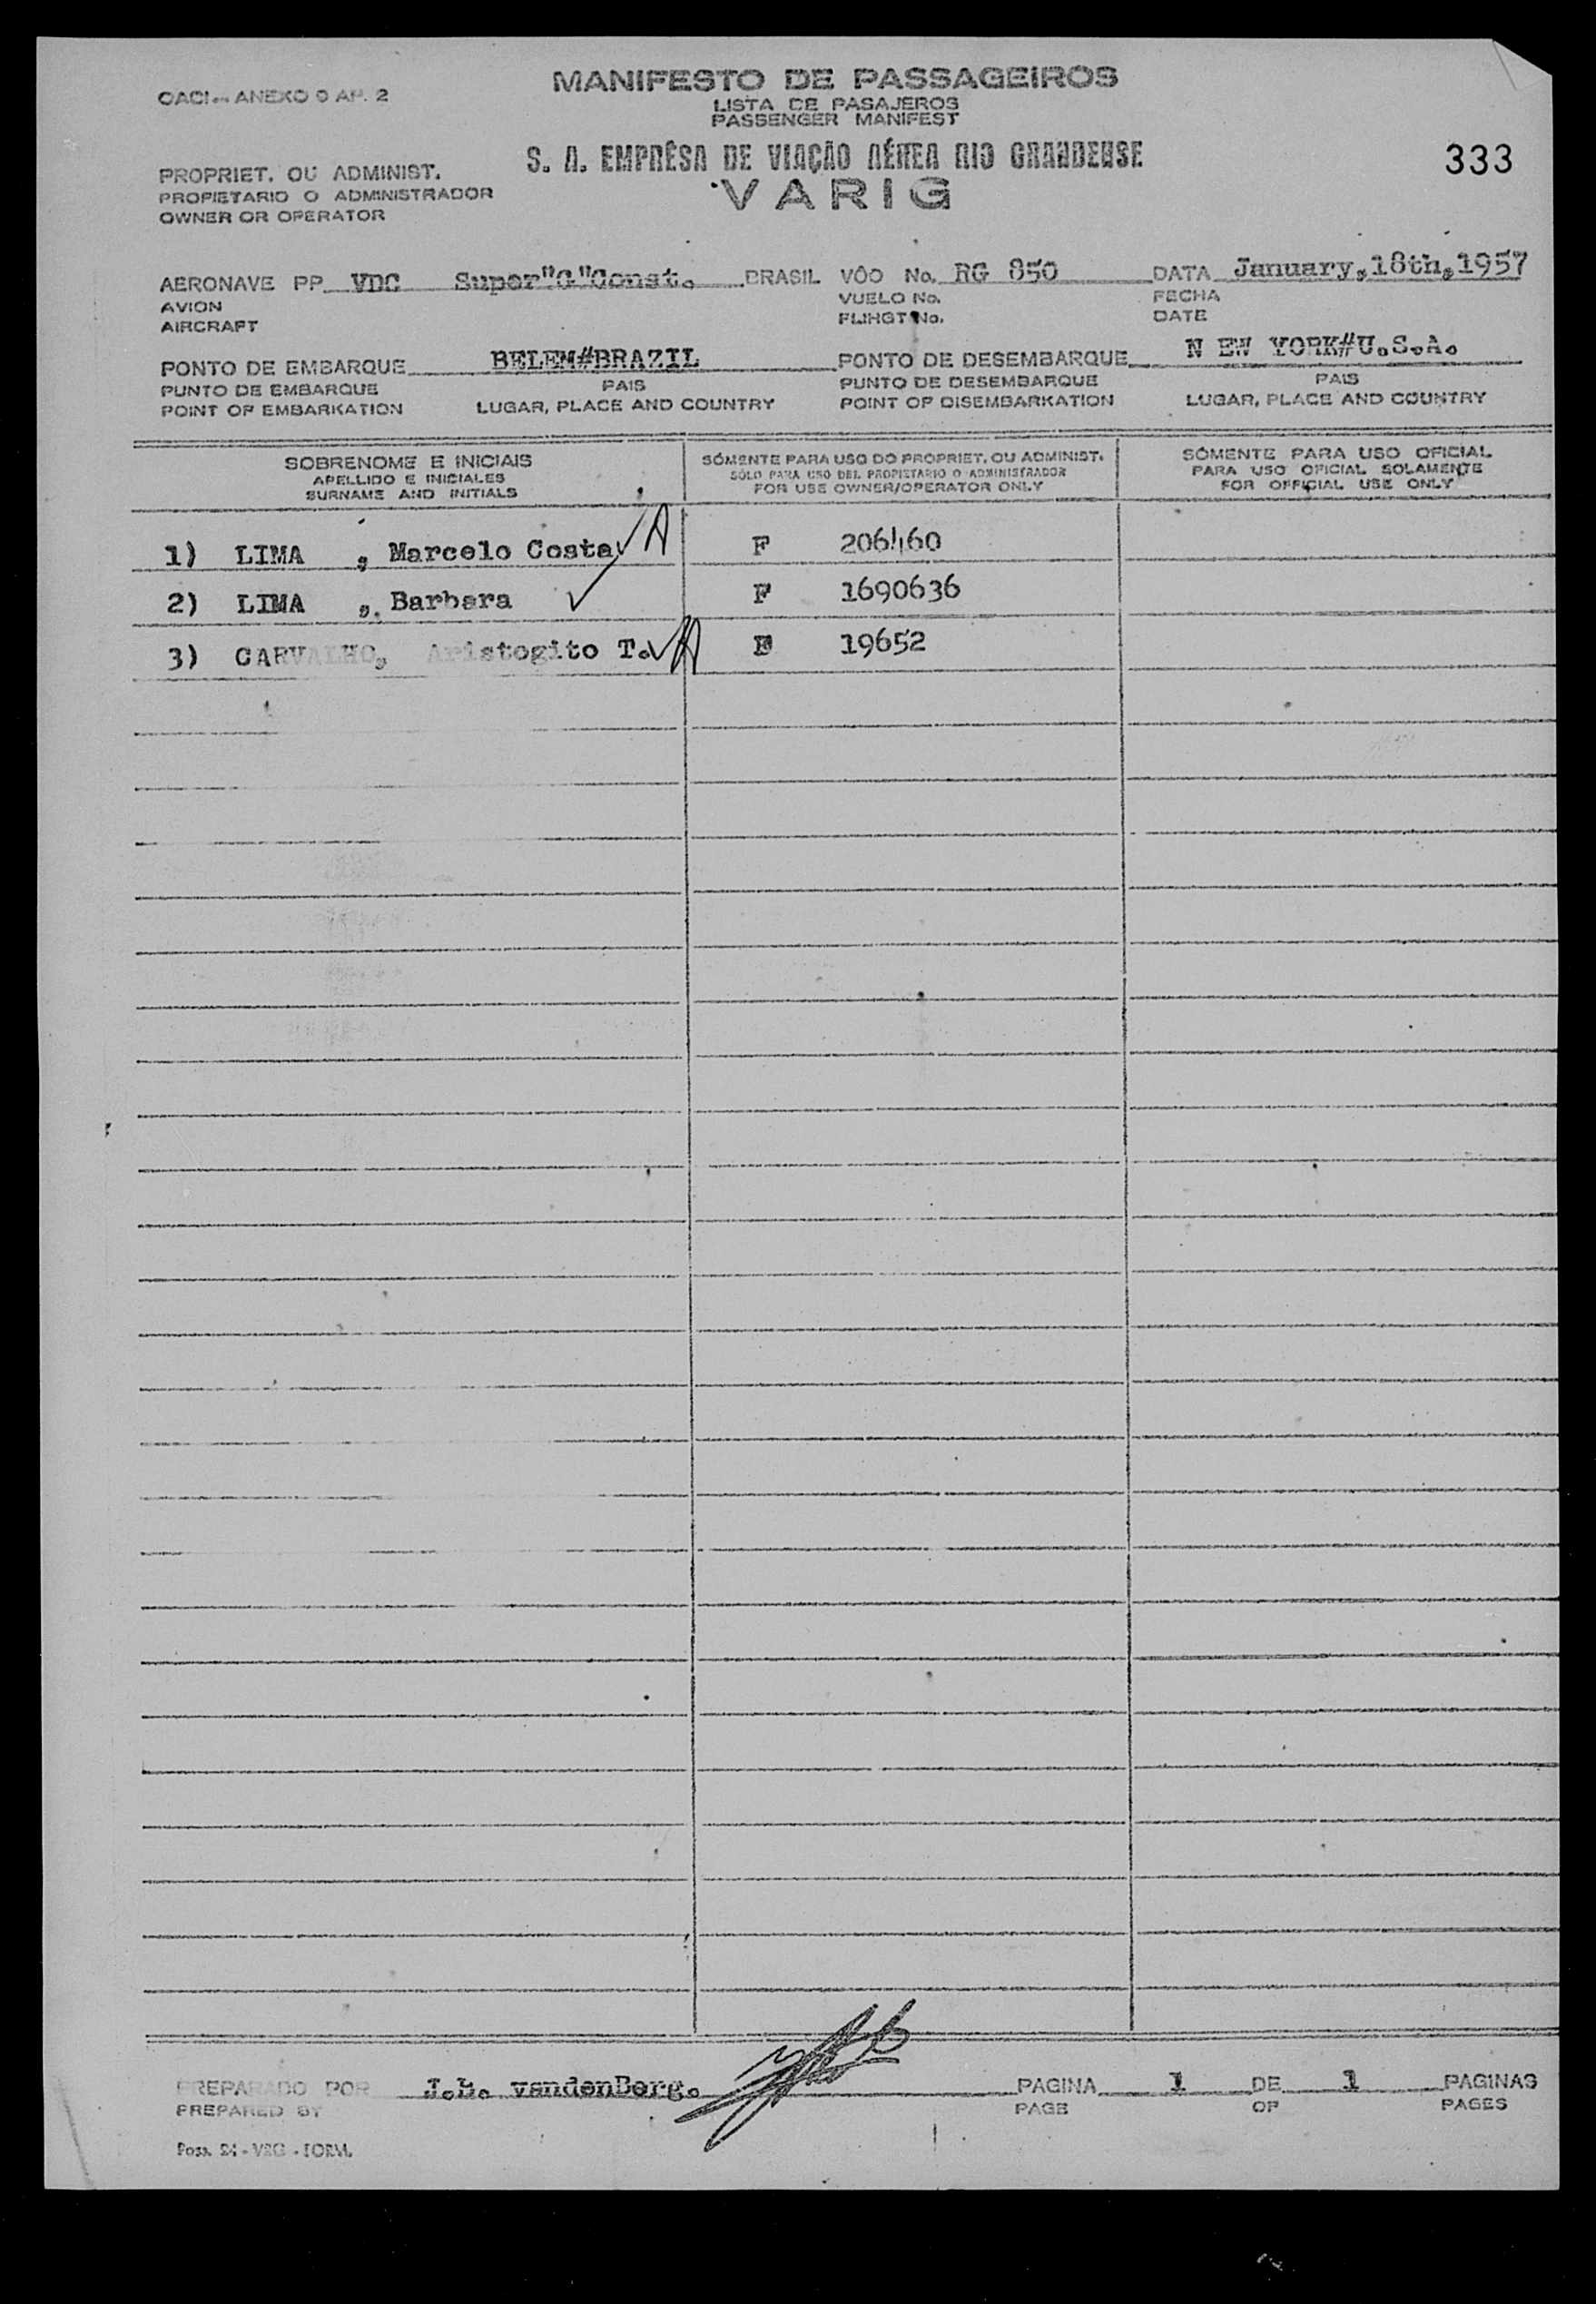 OACI - ANEXO 9 AP. 2
MANIFESTO DE PASSAGEIROS
LISTA DE PASAJEROS
PASSENGER MANIFEST
S. A. EMPRÊSA DE VIAÇÃO AÉREA RIO GRANDENSE
VARIG
333
PROPRIET. OU ADMINIST.
PROPIETARIO O ADMINISTRADOR
OWNER OR OPERATOR
AERONAVE PP VDC Super"G"Const. BRASIL VÔO No. RG 850 DATA January,18th,1957
AVION VUELO No. FECHA
AIRCRAFT FLIHGT No. DATE
PONTO DE EMBARQUE BELEM#BRAZIL PONTO DE DESEMBARQUE N EW YORK#U.S.A.
PUNTO DE EMBARQUE PAIS PUNTO DE DESEMBARQUE PAIS
POINT OF EMBARKATION LUGAR, PLACE AND COUNTRY POINT OF DISEMBARKATION LUGAR, PLACE AND COUNTRY
SOBRENOME E INICIAIS SÓMENTE PARA USO DO PROPRIET. OU ADMINIST. SÓMENTE PARA USO OFICIAL
APELLIDO E INICIALES SOLO PARA USO DEL PROPIETARIO O ADMINISTRADOR PARA USO OFICIAL SOLAMENTE
SURNAME AND INITIALS FOR USE OWNER/OPERATOR ONLY FOR OFFICIAL USE ONLY
1) LIMA , Marcelo Costa ✓ A F 206460
2) LIMA ,. Barbara ✓ F 1690636
3) CARVALHO, Aristogito T. ✓ A F 19652
PREPARADO POR vandenBerg. PAGINA 1 DE 1 PAGINAS
PREPARED BY PAGE OF PAGES